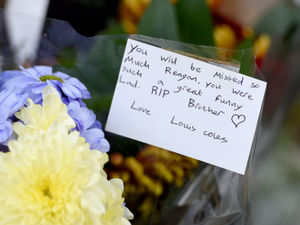 You will be Missed so
Much Reagan, you were
such a great funny
Lad. RIP Brother ♡
Love Louis coles